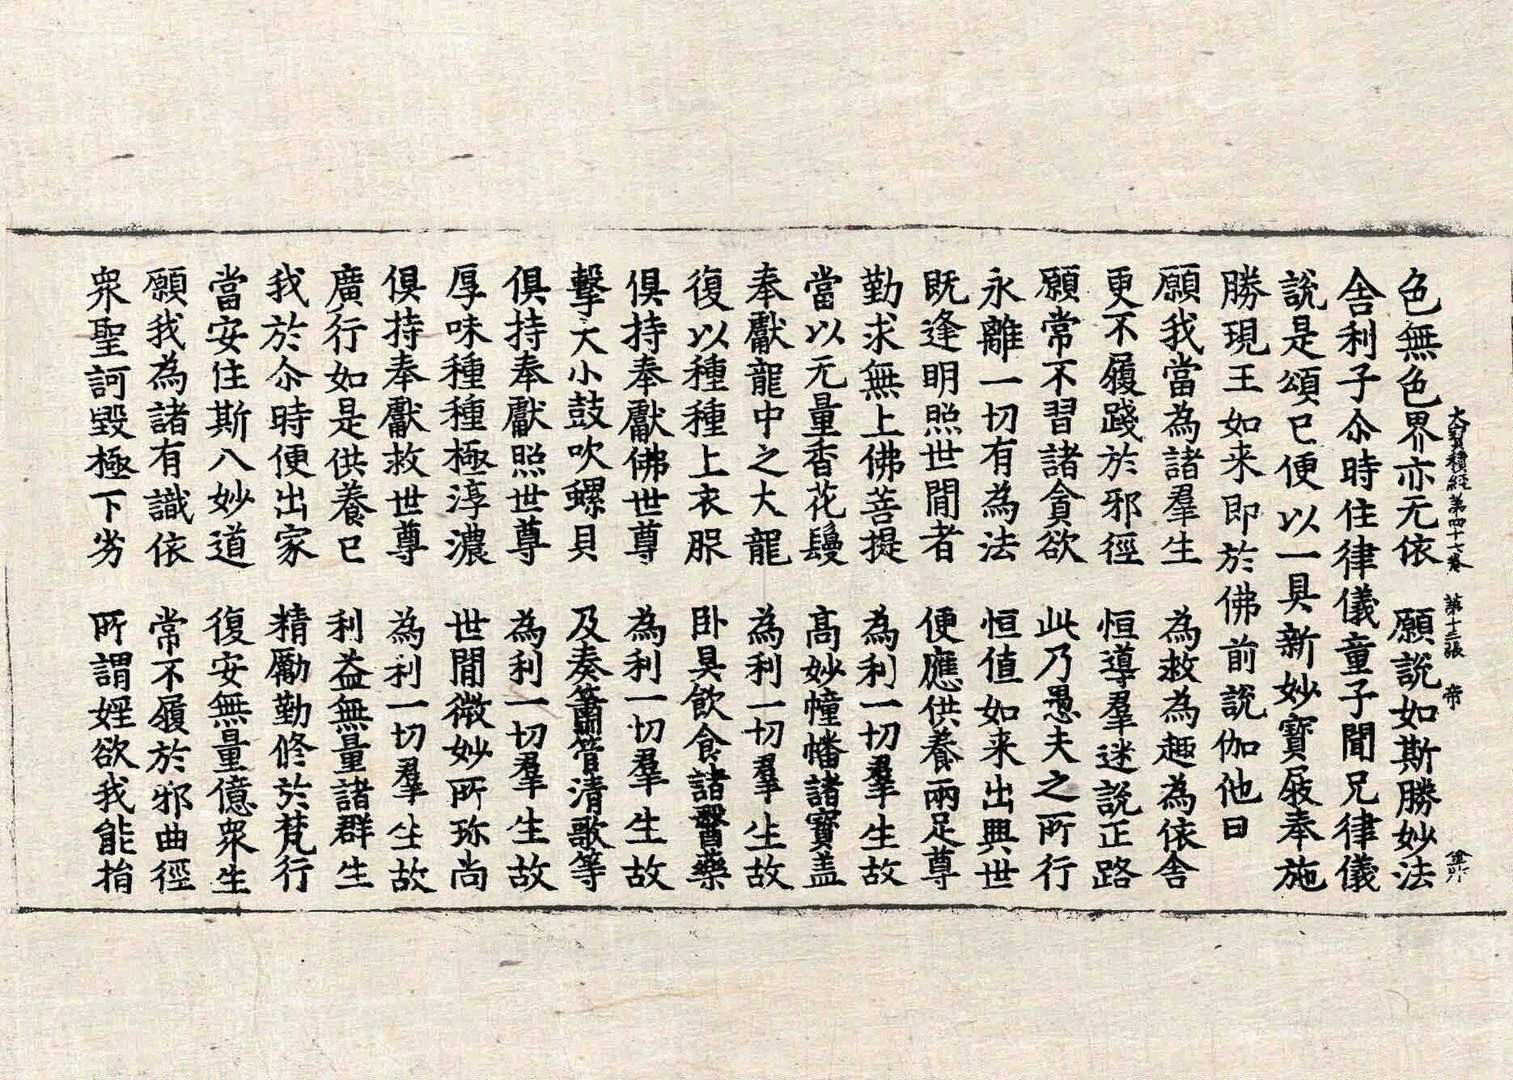 大寳積經第四十七卷 第十三張 帝
色無色界亦无依 願說如斯勝妙法
舎利子尒時住律儀童子聞兄律儀
說是頌已便以一具新妙寳屐奉施
勝現王如来即於佛前說伽他曰
願我當為諸羣生 為救為趣為依舎
更不履踐於邪徑 恒導羣迷說正路
願常不習諸貪欲 此乃愚夫之所行
永離一切有為法 恒值如来出興世
既逢明照世閒者 便應供養兩足尊
勤求無上佛菩提 為利一切羣生故
當以无量香花鬘 高妙幢幡諸寳盖
奉獻龍中之大龍 為利一切羣生故
復以種種上衣服 卧具飲食諸醫藥
俱持奉獻佛世尊 為利一切羣生故
擊大小鼓吹螺貝 及奏簫管清歌等
俱持奉獻照世尊 為利一切羣生故
厚味種種極淳濃 世閒微妙所珎尚
俱持奉獻救世尊 為利一切羣生故
廣行如是供養已 利益無量諸群生
我於尒時便出家 精勵勤修於梵行
當安住斯八妙道 復安無量億衆生
願我為諸有識依 常不履於邪曲徑
衆聖訶毀極下劣 所謂婬欲我能捨